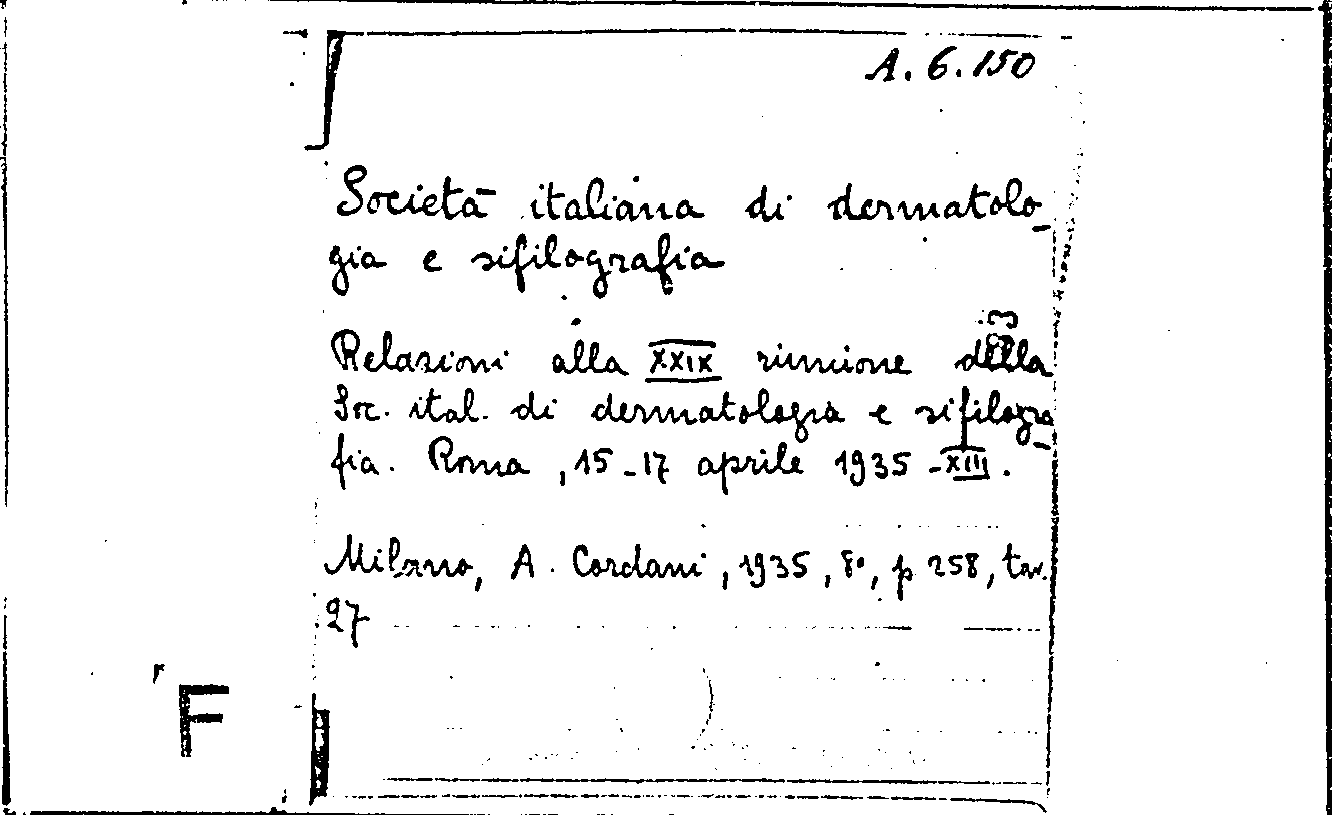 A. 6. 150
Società italiana di dermatolo-
gia e sifilografia
Relazioni alla XXIX riunione della
Soc. ital. di dermatologia e sifilogra-
fia. Roma, 15-17 aprile 1935-XIII.
Milano, A. Cordani, 1935, 8°, p 258, tav.
27
F